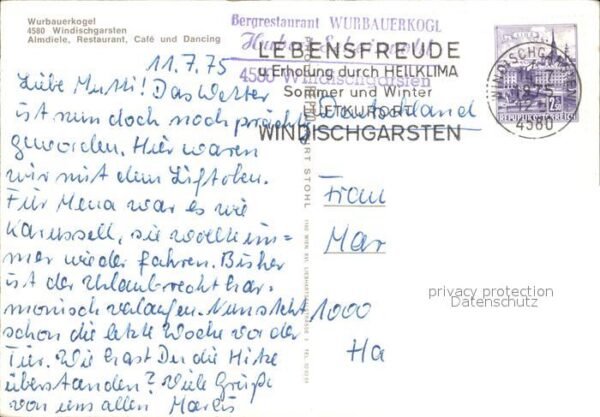 Wurbauerkogel
4580 Windischgarsten
Almdiele, Restaurant, Café und Dancing
Bergrestaurant WURBAUERKOGL
4580 Windischgarsten
LEBENSFREUDE
u. Erholung durch HEILKLIMA
Sommer und Winter
LUFTKURORT
WINDISCHGARSTEN
WINDISCHGARSTEN
1975
4580
REPUBLIK ÖSTERREICH
11.7.75
Liebe Mutti! Das Wetter
ist nun doch noch prächtig
geworden. Hier waren
wir mit dem Lift oben.
Für Mena war es wie
Karussell, sie wollte im=
mer wieder fahren. Bisher
ist der Urlaub recht har=
monisch verlaufen. Nun steht
schon die letzte Woche vor der
Tür. Wie hast Du die Hitze
überstanden? Viele Grüße
von uns allen
Deutschland
Frau
Mar
1000
Ha
STOHL
privacy protection
Datenschutz